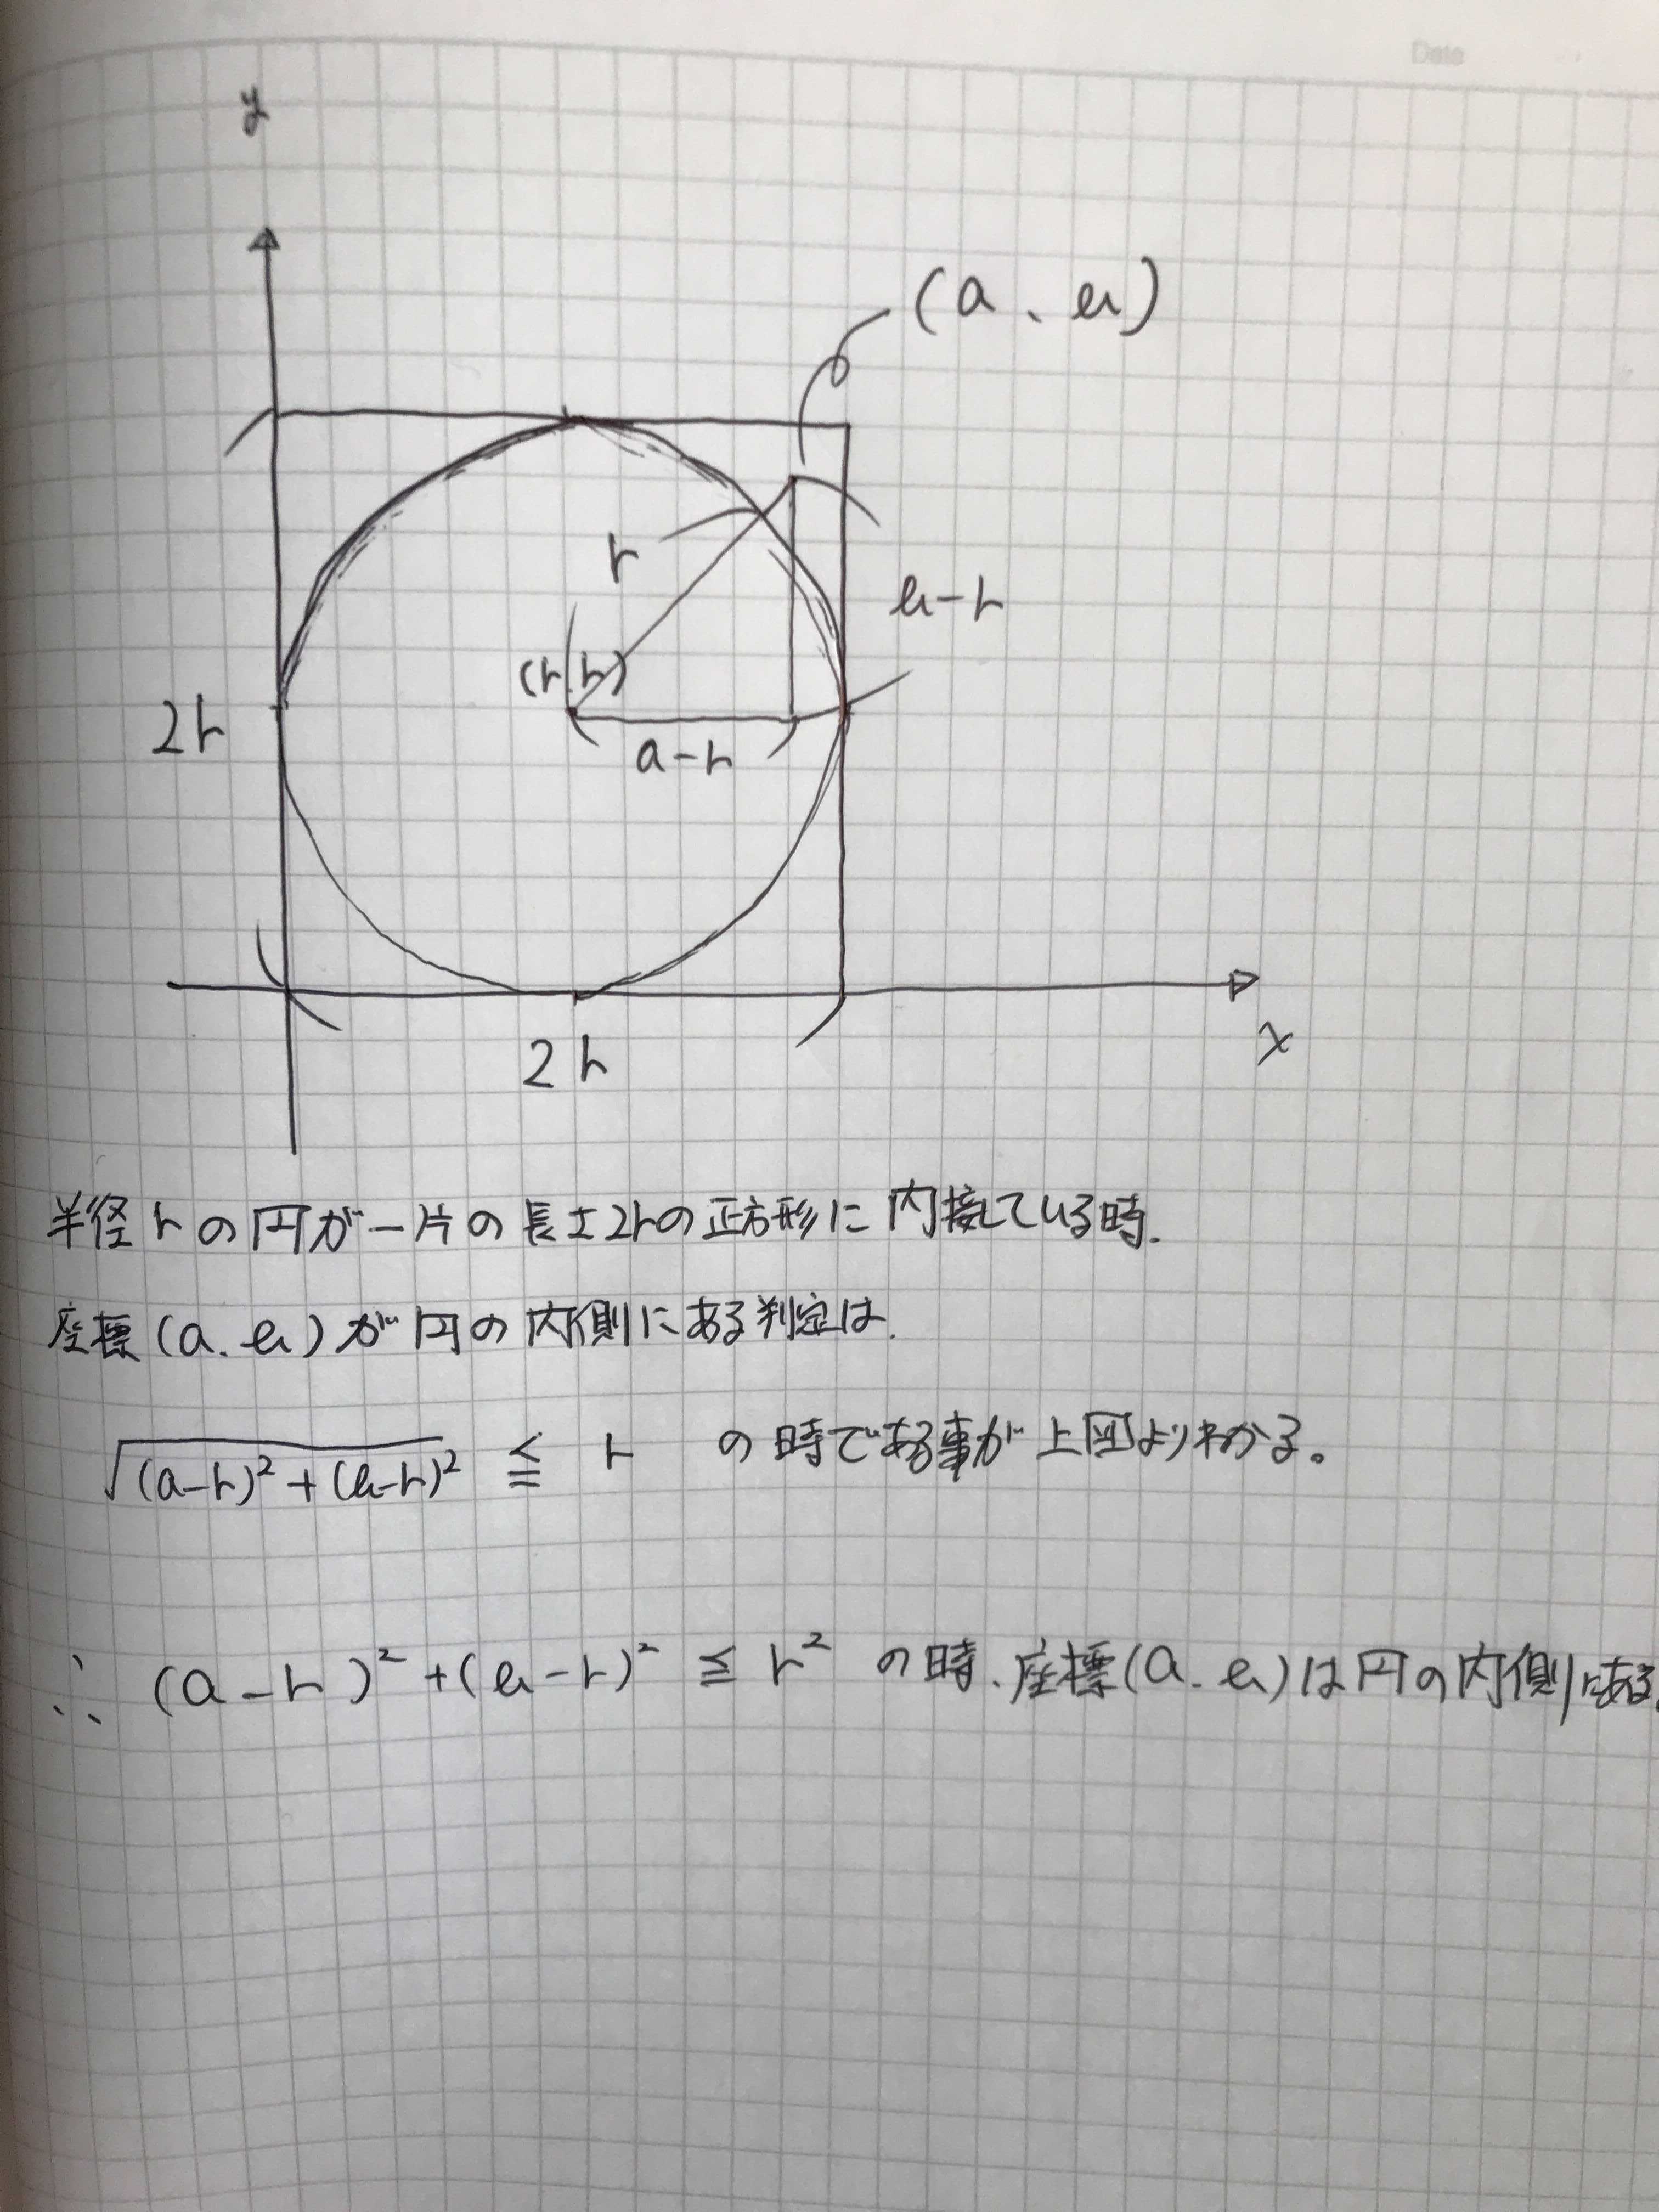 Date
y
(a、b)
r
b-r
(r.r)
2r
a-r
2r
x
半径rの円が一片の長さ2rの正方形に内接している時.
座標(a.b)が円の内側にある判定は.
√(a-r)²+(b-r)² ≦ r の時である事が上図よりわかる。
∴ (a-r)²+(b-r)² ≦ r² の時.座標(a.b)は円の内側にある.